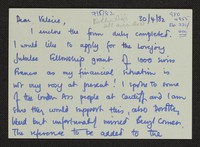 Dear Valerie, 30/4/82
I enclose the form duly completed.
I would like to apply for the
Jubilee Fellowship grant of 1000 Swiss
Francs as my financial situation is
not very rosy at present! I spoke to some
of the London Ass people at Cardiff, and I am
sure they would support this, also Dorothy
but unfortunately missed Beryl
The reference to be added to the